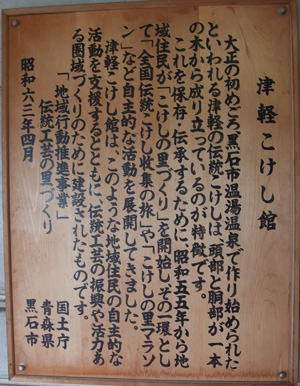 津軽こけし館
大正の初めごろ、黒石市温湯温泉で作り始められた
といわれる津軽の伝統こけしは、頭部と胴部が一本
の木から成り立っているのが特徴です。
これを保存・伝承するために、昭和五五年から地
域住民が「こけしの里づくり」を開始し、その一環とし
て「全国伝統こけし収集の旅」や「こけしの里マラソ
ン」など自主的な活動を展開してきました。
津軽こけし館は、このような地域住民の自主的な
活動を支援するとともに、伝統工芸の振興や活力あ
る圏域づくりのために建設されたものです。
「地域行動推進事業」
伝統工芸の里づくり
国土庁
青森県
黒石市
昭和六三年四月